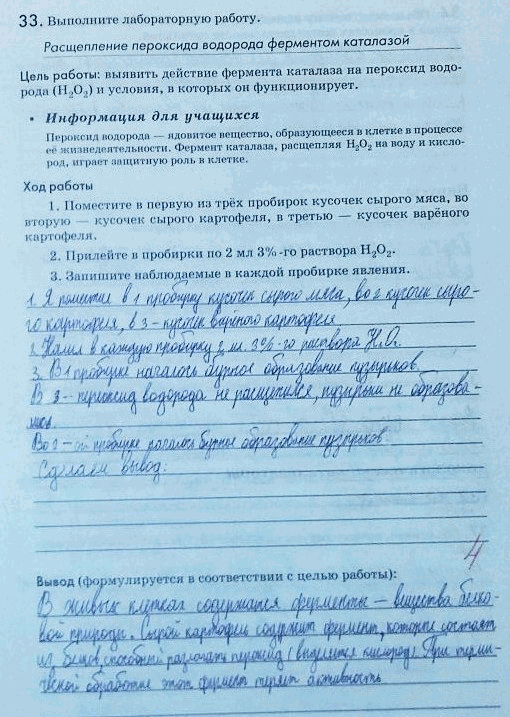 33. Выполните лабораторную работу.
Расщепление пероксида водорода ферментом каталазой
Цель работы: выявить действие фермента каталаза на пероксид водо-
рода (H₂O₂) и условия, в которых он функционирует.
• Информация для учащихся
Пероксид водорода — ядовитое вещество, образующееся в клетке в процессе
её жизнедеятельности. Фермент каталаза, расщепляя H₂O₂ на воду и кисло-
род, играет защитную роль в клетке.
Ход работы
1. Поместите в первую из трёх пробирок кусочек сырого мяса, во
вторую — кусочек сырого картофеля, в третью — кусочек варёного
картофеля.
2. Прилейте в пробирки по 2 мл 3%-го раствора H₂O₂.
3. Запишите наблюдаемые в каждой пробирке явления.
1. Я поместил в 1 пробирку кусочек сырого мяса, во 2 кусочек сыро-
го картофеля, в 3 - кусочек варёного картофеля
2. Налил в каждую пробирку 2 мл. 3%-го раствора H₂O₂
3. В 1 пробирке началось бурное образование пузырьков.
В 3 - пероксид водорода не расщепился, пузырьки не образова-
лись.
Во 2 - ой пробирке началось бурное образование пузырьков
Сделаем вывод:
4
Вывод (формулируется в соответствии с целью работы):
В живых клетках содержатся ферменты — вещества белко-
вой природы. Сырой картофель содержит фермент, которые состоят
из белков, способный разлогать пероксид (выделяется кислород). При терми-
ческой обработке этот фермент теряет активность